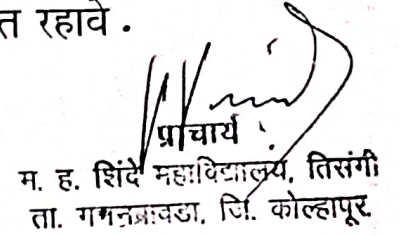 त रहावे .
प्राचार्य
म. ह. शिंदे महाविद्यालय, तिसंगी
ता. गगनबावडा, जि. कोल्हापूर.